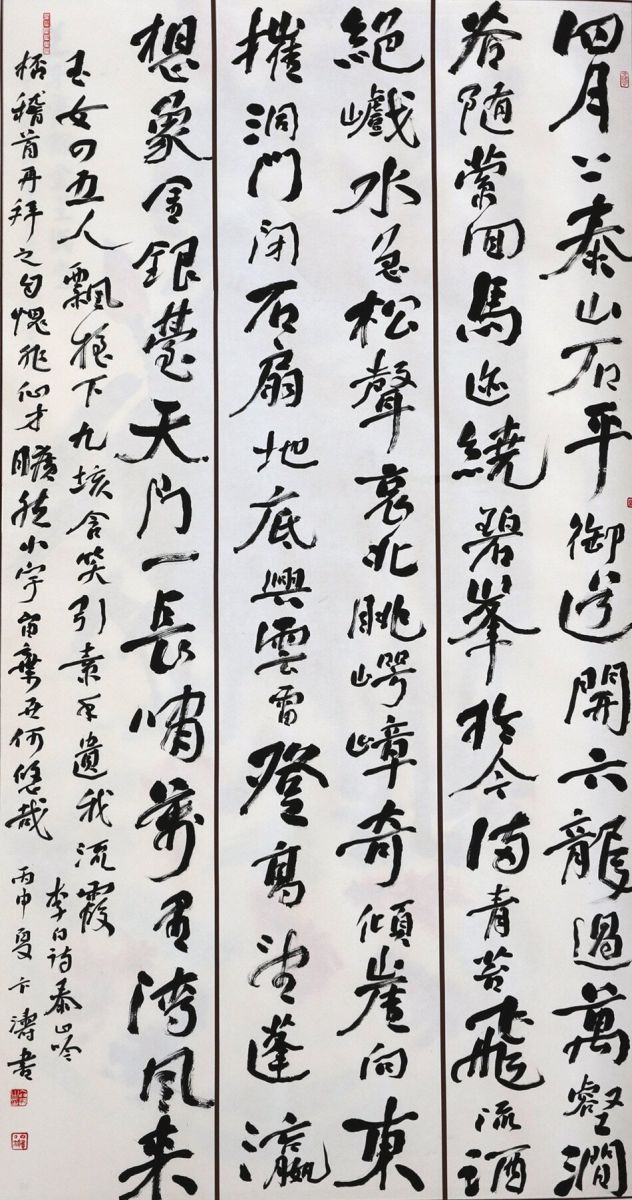 四月上泰山石平御道開六龍過萬壑澗
谷随縈回馬迹繞碧峯於今滿青苔飛流洒
絕巘水急松聲哀北眺崿嶂奇傾崖向東
摧洞門閉石扇地底興雲雷登高望蓬瀛
想象金銀臺天門一長嘯萬里清風来
玉女四五人飄摇下九垓含笑引素手遺我流霞
杯稽首再拜之自愧非仙才曠然小宇宙棄世何悠哉
李白詩泰山吟
丙申夏卞濤書